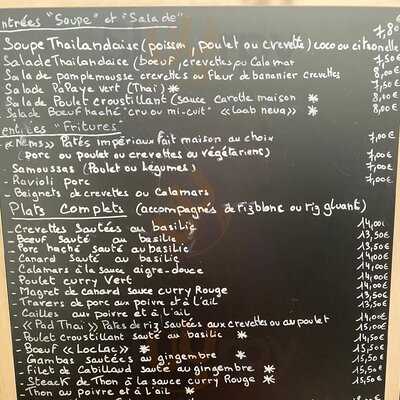 ntrées "Soupe" et "Salade"
Soupe Thaïlandaise (poisson, poulet ou crevette) coco ou citronelle 7,80
Salade Thaïlandaise (boeuf, crevettes ou Calamar 7,50€
Salade de pamplemousse crevettes ou fleur de bananier crevettes 8,00€
Salade Papaye vert (Thaï) * 7,50€
Salade de Poulet croustillant (sauce carotte maison * 8,00€
Salade Boeuf haché "cru ou mi-cuit" «Laab neua» * 8,00€
entrées "Fritures"
- «Nems» Pâtés impériaux fait maison au choix 7,00€
(porc ou poulet ou crevettes ou végétariens)
- Samoussas (Poulet ou légumes) 7,00€
- Ravioli porc 7,00€
- Beignets de crevettes ou Calamars 7,00€
Plats Complets (accompagnés de riz blanc ou riz gluant)
- Crevettes sautées au basilic 14,00€
- Boeuf sauté au basilic 13,50€
- Porc haché sauté au basilic 13,50€
- Canard sauté au basilic 14,00€
- Calamars à la sauce aigre-douce 14,00€
- Poulet curry Vert 14,00€
- Magret de canard sauce curry Rouge 14,00€
- Travers de porc au poivre et à l'ail 13,50€
- Cailles au poivre et à l'ail 13,50€
- «Pad Thaï» Pates de riz sautées aux crevettes ou au poulet 14,00€
- Poulet croustillant sauté au basilic * 15,00€
- Boeuf «LocLac» * 15,50€
- Gambas sautées au gingembre * 15,50€
- Filet de Cabillaud sauté au gingembre * 15,50€
- Steack de Thon à la sauce curry Rouge * 15,50€
- Thon au poivre et à l'ail * 15,50€